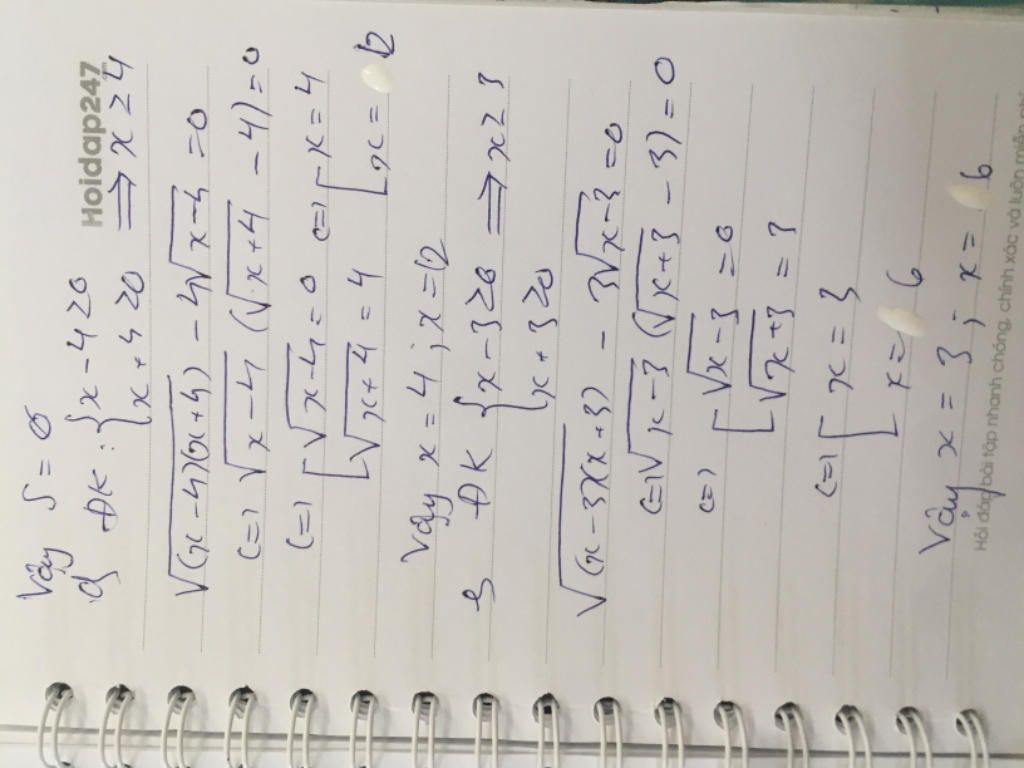 Hoidap247
Vậy S = ∅
d) ĐK: { x - 4 ≥ 0
x + 4 ≥ 0 => x ≥ 4
√(x - 4)(x + 4) - 4√x - 4 = 0
<=> √x - 4 (√x + 4 - 4) = 0
<=> [ √x - 4 = 0 <=> [ x = 4
√x + 4 = 4 x = 12
Vậy x = 4 ; x = 12
ĐK { x - 3 ≥ 0 => x ≥ 3
x + 3 ≥ 0
√(x - 3)(x + 3) - 3√x - 3 = 0
<=> √x - 3 (√x + 3 - 3) = 0
<=> [ √x - 3 = 0
√x + 3 = 3
<=> [ x = 3
x = 6
Vậy x = 3 ; x = 6
Hỏi đáp bài tập nhanh chóng, chính xác và luôn miễn phí